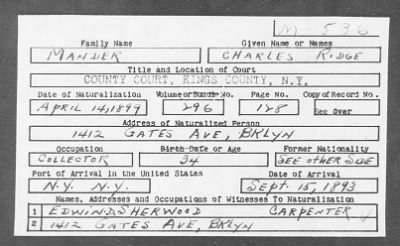 M-536
Family Name Given Name or Names
MANDER CHARLES RIDGE
Title and Location of Court
COUNTY COURT, KINGS COUNTY, N.Y.
Date of Naturalization Volume or Bundle No. Page No. Copy of Record No.
APRIL 14, 1899 296 128 See Over
Address of Naturalized Person
1412 GATES AVE, BKLYN
Occupation Birth Date or Age Former Nationality
COLLECTOR 34 SEE OTHER SIDE
Port of Arrival in the United States Date of Arrival
N.Y. N.Y. SEPT. 15, 1893
Names, Addresses and Occupations of Witnesses To Naturalization
1 EDWIN D SHERWOOD CARPENTER
2 1412 GATES AVE, BKLYN